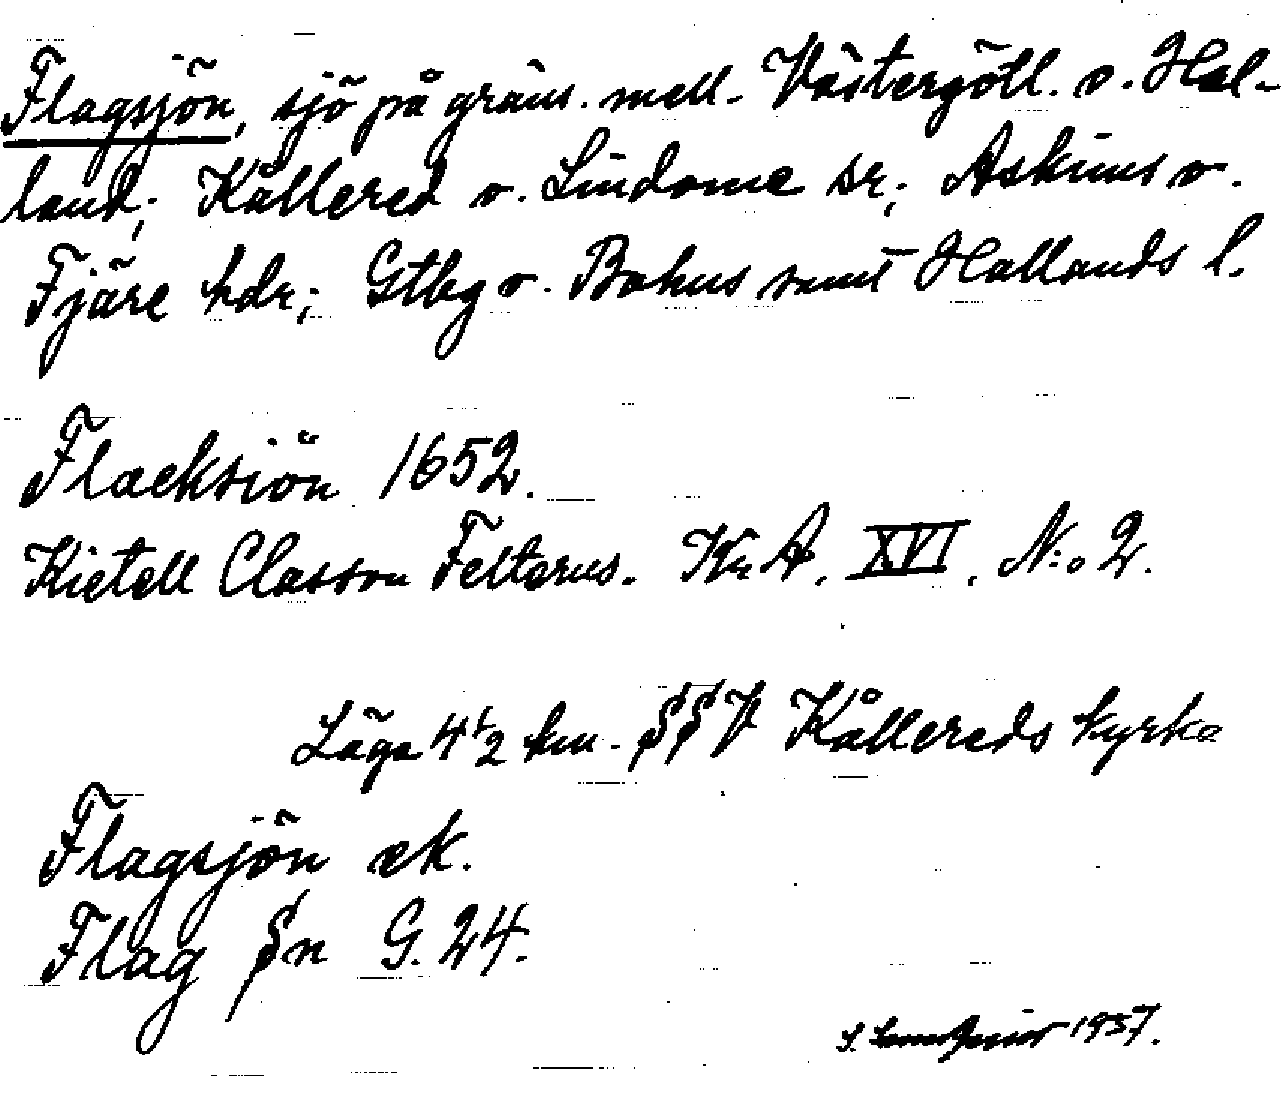 Flagsjön, sjö på gräns. mell. Västergötl. o. Hal-
land; Kållered o. Lindome sr; Askims o.
Fjäre hdr; Gtbg o. Bohus samt Hallands l.
Flacksiön 1652.
Kietell Classon Felterus. Kr A. XVI. N:o 2.
Läge 4 1/2 km. SSV Kållereds kyrka
Flagsjön ek.
Flag Sn G. 24.
1937.